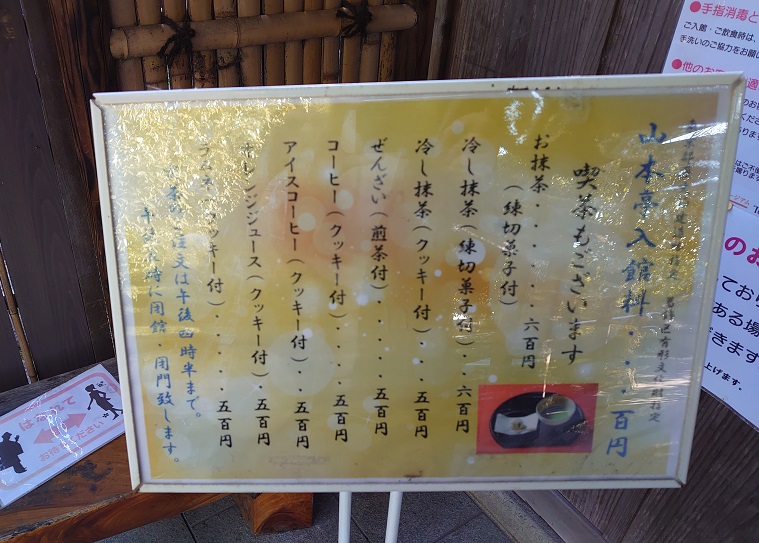 山本亭入館料・・・百円
喫茶もございます
お抹茶・・・・・六百円
（練切菓子付）
冷し抹茶（練切菓子付）・・六百円
冷し抹茶（クッキー付）・・・五百円
ぜんざい（煎茶付）・・・・五百円
コーヒー（クッキー付）・・・・五百円
アイスコーヒー（クッキー付）・・五百円
オレンジジュース（クッキー付）・五百円
ラムネ（クッキー付）・・・・五百円
喫茶のご注文は午後四時半まで。
午後五時に閉館・閉門致します。
●手指消毒と
ご入館・ご飲食時は、
手洗いのご協力をお願
●他のお
のお
ており
ある場
できます
上げます。